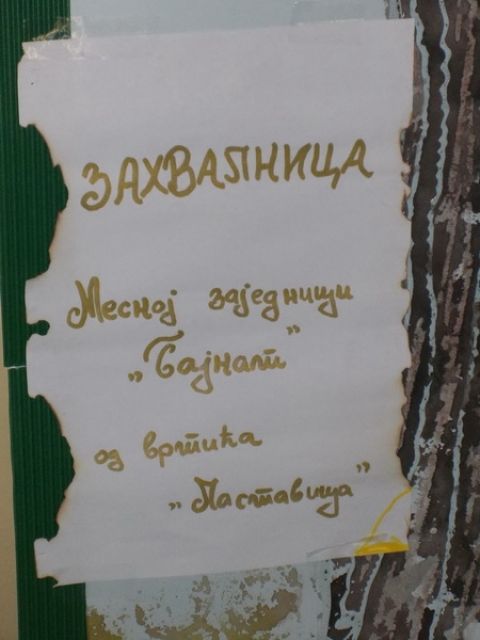 ЗАХВАЛНИЦА
Месној заједници
„Бајнат”
од вртића
„Ластавица”